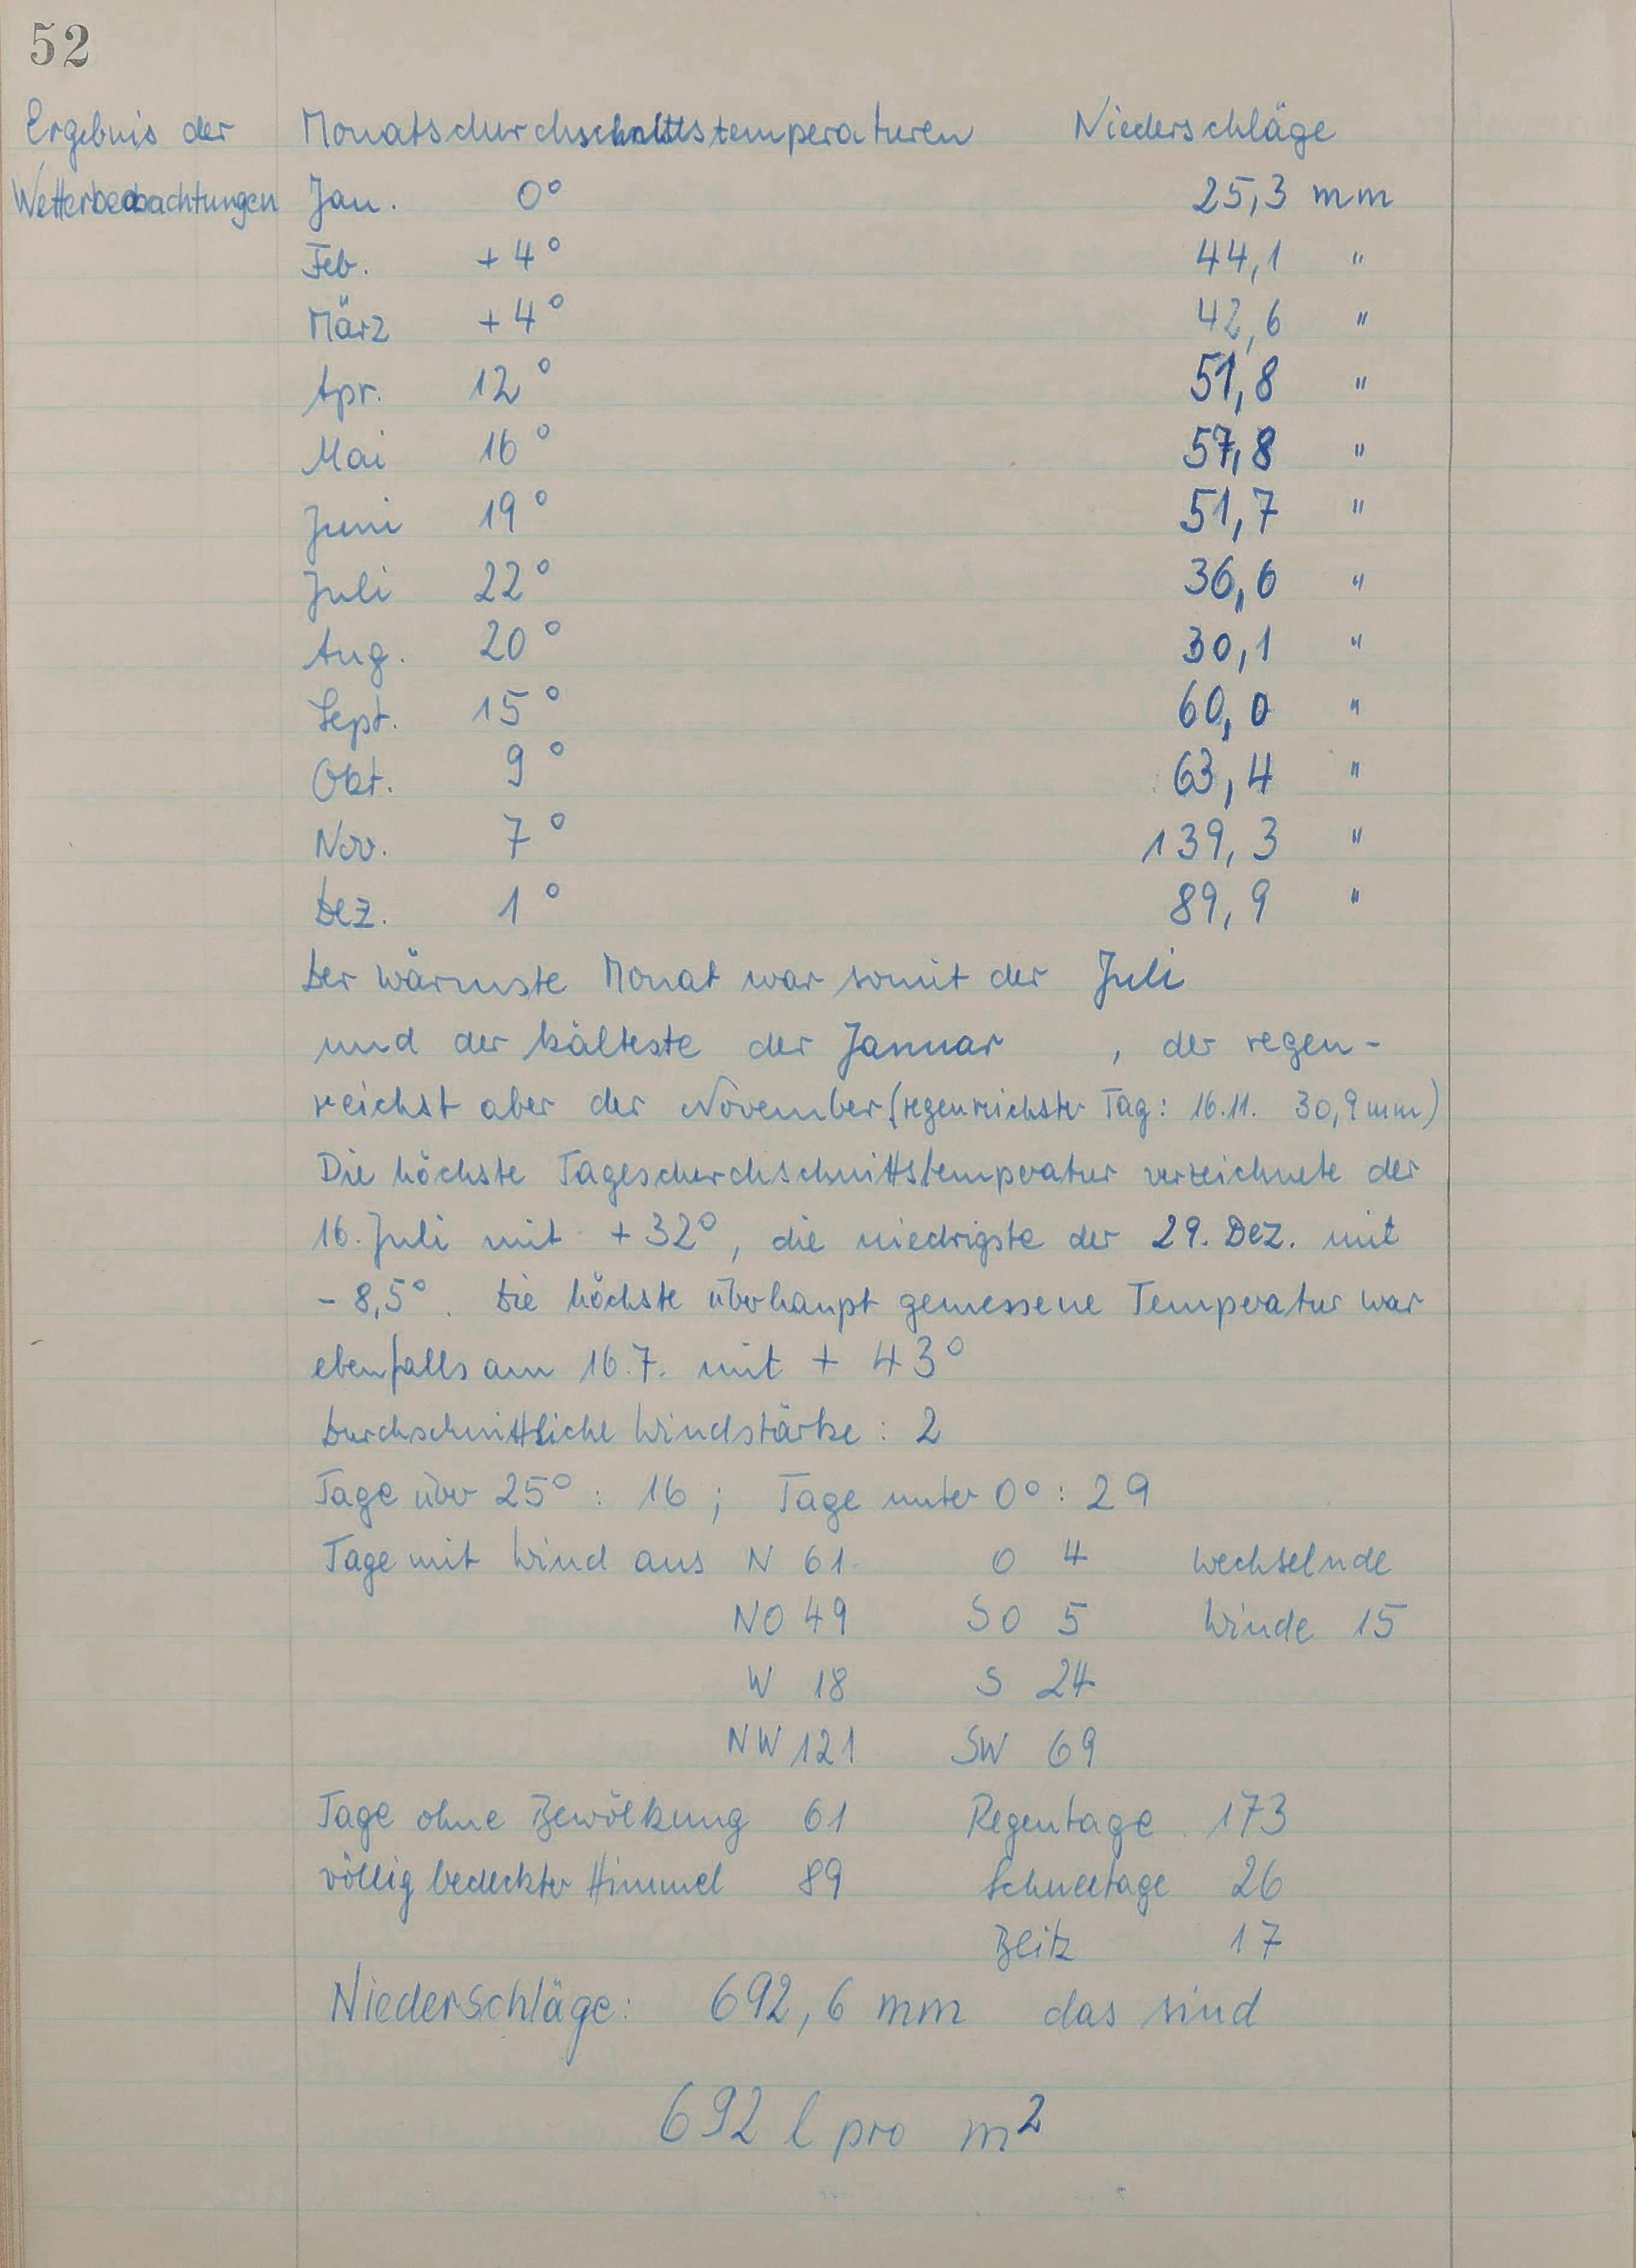 52
Ergebnis der Monatsdurchschnittstemperaturen Niederschläge
Wetterbeobachtungen Jan. 0° 25,3 mm
Feb. +4° 44,1 "
März +4° 42,6 "
Apr. 12° 51,8 "
Mai 16° 57,8 "
Juni 19° 51,7 "
Juli 22° 36,6 "
Aug. 20° 30,1 "
Sept. 15° 60,0 "
Okt. 9° 63,4 "
Nov. 7° 139,3 "
Dez. 1° 89,9 "
Der wärmste Monat war somit der Juli
und der kälteste der Januar , der regen-
reichst aber der November (regenreichster Tag: 16.11. 30,9 mm)
Die höchste Tagesdurchschnittstemperatur verzeichnete der
16. Juli mit +32°, die niedrigste der 29. Dez. mit
- 8,5°. Die höchste überhaupt gemessene Temperatur war
ebenfalls am 16.7. mit + 43°
Durchschnittliche Windstärke: 2
Tage über 25° : 16 ; Tage unter 0° : 29
Tage mit Wind aus N 61 O 4 wechselnde
NO 49 SO 5 Winde 15
W 18 S 24
NW 121 SW 69
Tage ohne Bewölkung 61 Regentage 173
völlig bedeckter Himmel 89 Schneetage 26
Blitz 17
Niederschläge: 692,6 mm das sind
692 l pro m²